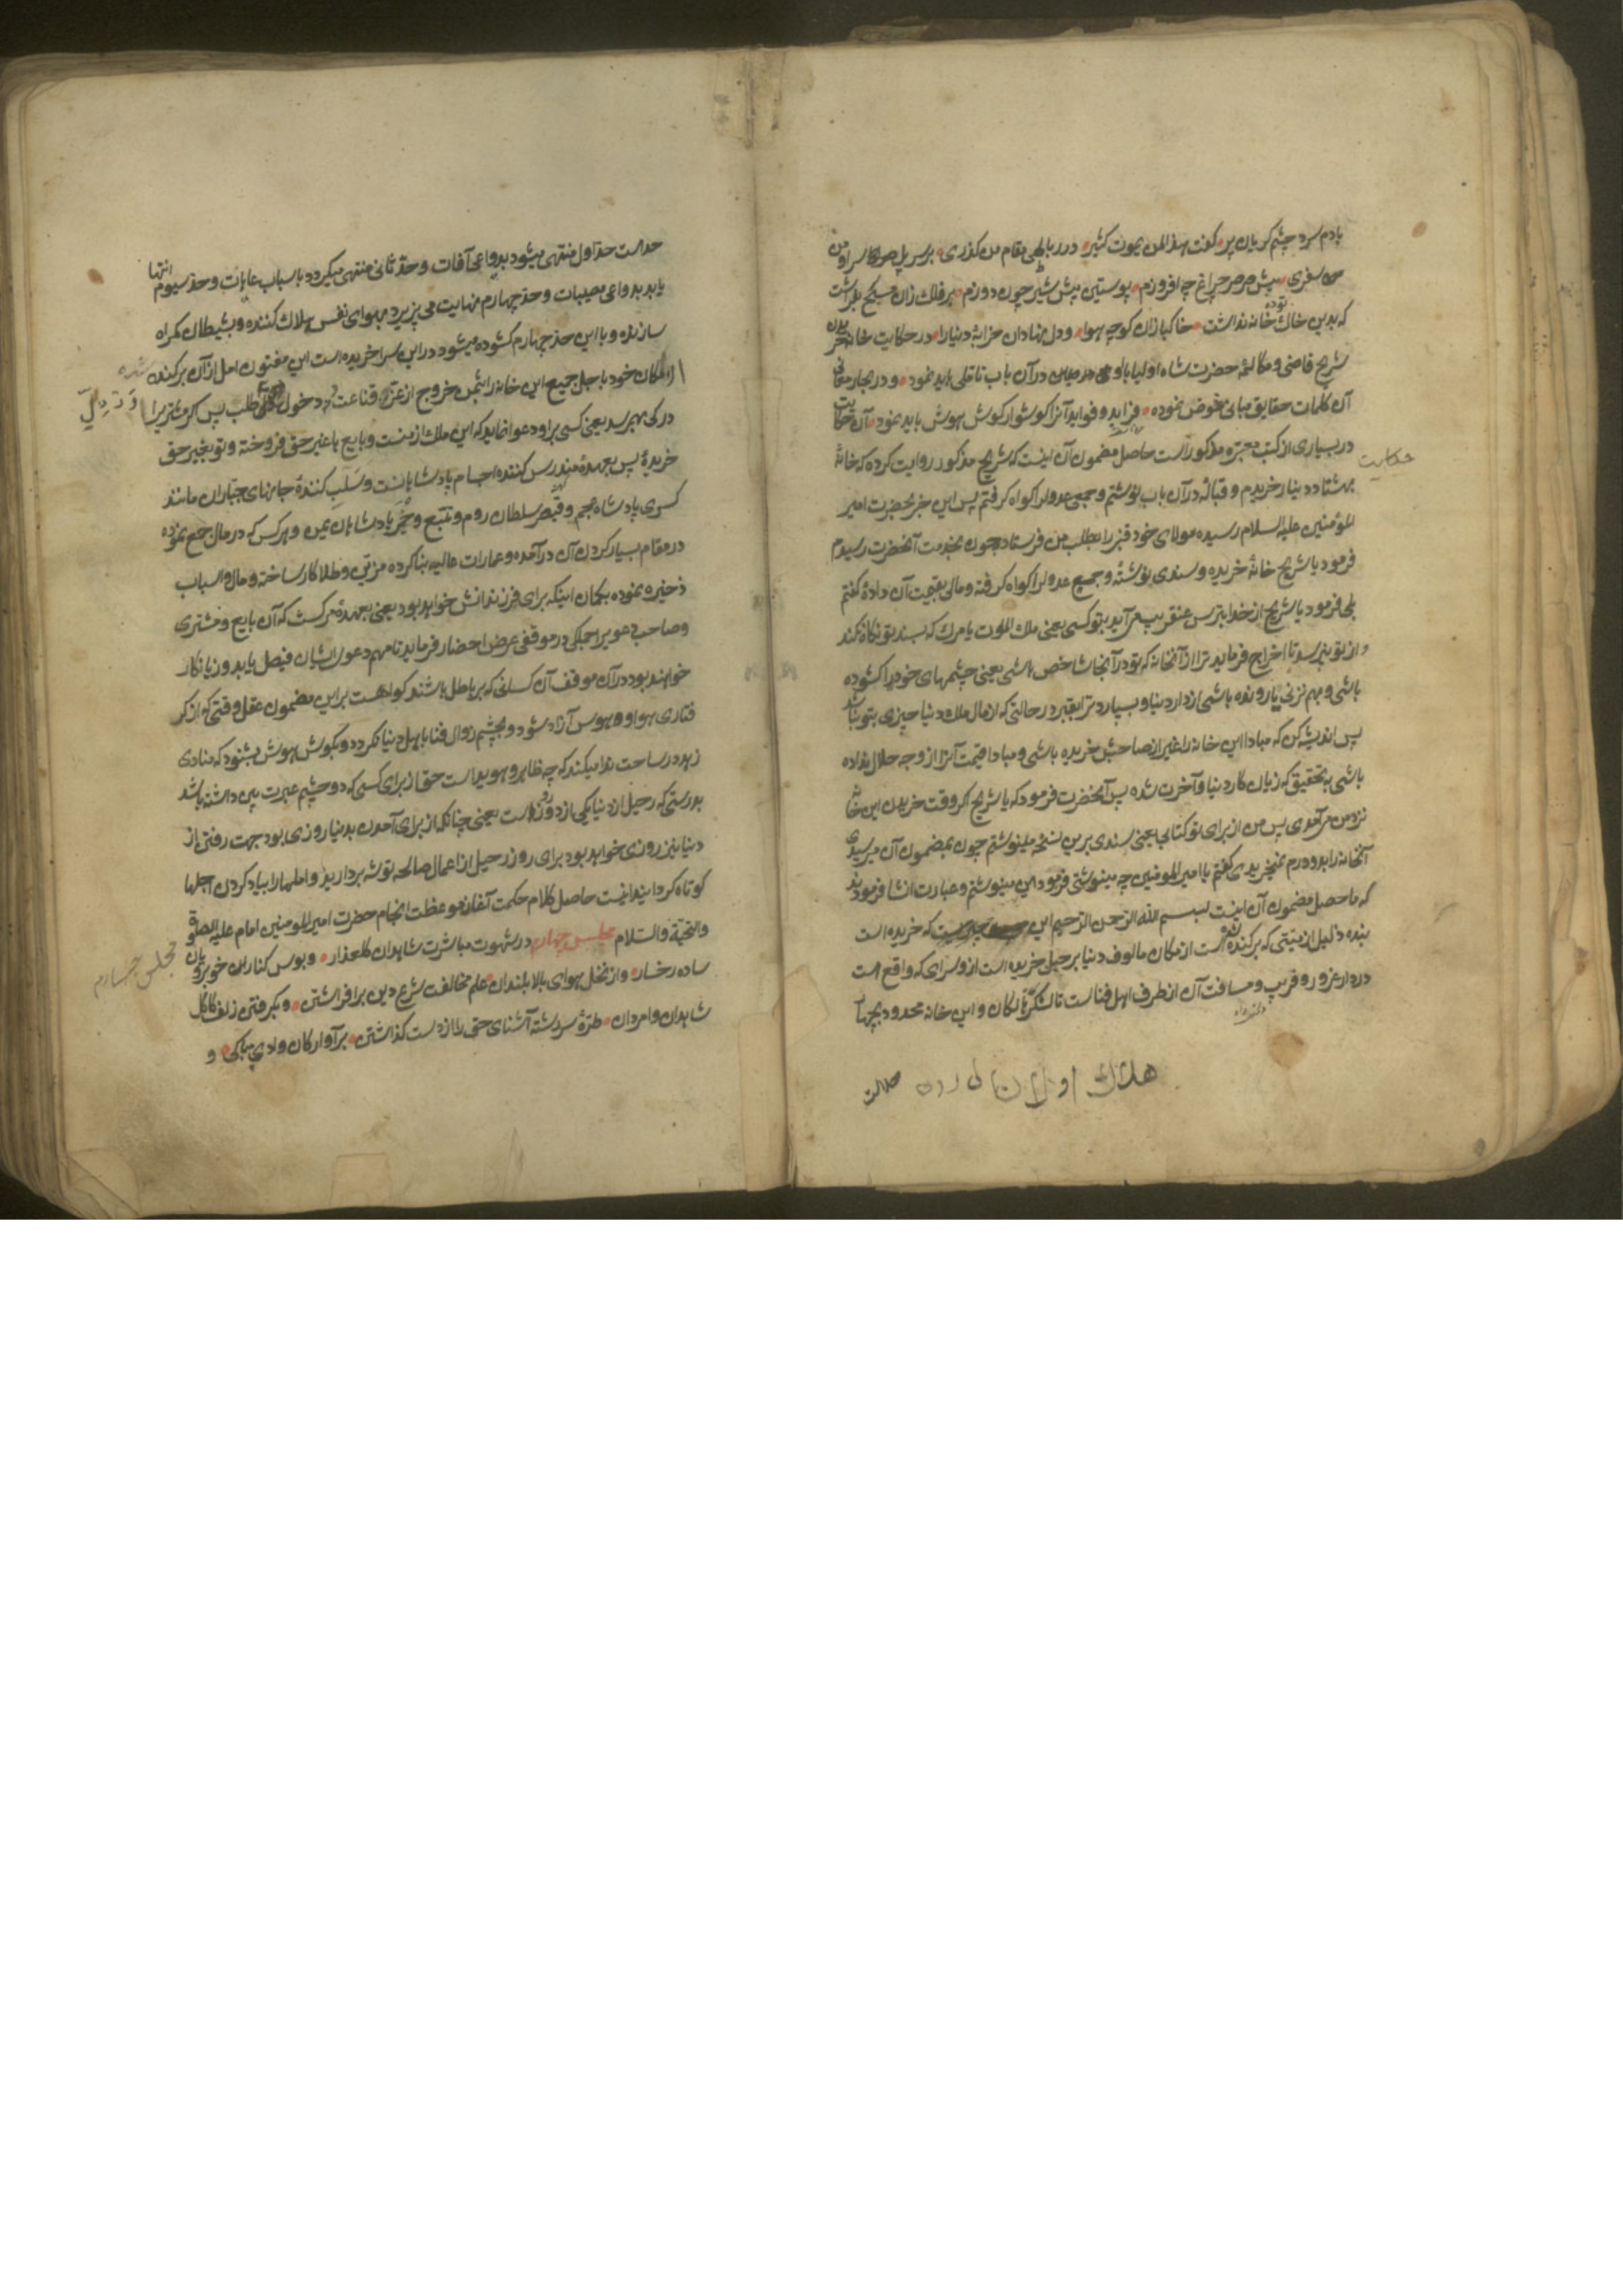 بادم سرد چشم گریان پیر گفت هذا لمن یموت کثیر در رباطی مقام من گذری بر سر پل
من سفری پیش صرصر چراغ چه افروزم پوستین پیش شیر چون دوزم بر فلک زان مسیح
که بدین خاک توده خانه نداشت خاکبازان کوچه هوا و دل نهادان خرابه دنیا را در حکایت خانه خریدن
شریح قاضی و مکالمه حضرت شاه اولیا با وی در آن باب تاملی باید نمود و در بحار معانی
آن کلمات حقایق مبانی خوض نموده فراید و فواید آنرا گوشوار گوش هوش باید نمود آن حکایت
حکایت
در بسیاری از کتب معتبره مذکور است حاصل مضمون آن اینست که شریح مذکور روایت کرده که خانهٔ
بهشتاد دینار خریدم و قباله در آن باب نوشتم و جمعی عدول را گواه گرفتم پس این خبر بحضرت امیر
المؤمنین علیه السلام رسیده مولای خود قنبر را بطلب من فرستاد چون بخدمت آنحضرت رسیدم
فرمود یا شریح خانهٔ خریده و سندی نوشتهٔ و جمیع عدول را گواه گرفته و مالی بقیمت آن دادهٔ گفتم
بلی فرمود یا شریح از خدا بترس عنقریب می آید بتو کسی یعنی ملک الموت یا مرگ که بسند تو نگاه نکند
و از تو نپرسد تا اخراج فرماید ترا از آنخانه که تو در آنجا شاخص باشی یعنی چشمهای خود را گشوده
باشی و بهم نزنی یا رونده باشی از دار دنیا و بسپارد ترا بقبر در حالتی که از مال ملک دنیا چیزی بتو نباشد
پس اندیشه کن که مبادا این خانه را غیر از صاحبش خریده باشی و مبادا قیمت آنرا از وجه حلال نداده
باشی بتحقیق که زیان کار دنیا و آخرت شده پس آنحضرت فرمود که یا شریح اگر وقت خریدن این خانه
نزد من می آمدی پس من از برای تو کتابی یعنی سندی برین نسخه مینوشتم چون بمضمون آن میرسیدی
آنخانه را بدو درم نمیخریدی گفتم یا امیر المومنین چه مینوشتی فرمود این مینوشتم و عبارت انشا فرمودند
که ماحصل مضمون آن اینست بسم الله الرحمن الرحیم این که خریده است
بنده ذلیل از میتی که برکنده شده است از مکان مالوف دنیا برحیل خریده است از و سرای که واقع است
در دار غرور و فریب و مسافت آن از طرف اهل فناست تا لشکرگاه هالکان و این خانه محدود بچهار
حد است حد اول منتهی میشود بدواعی آفات و حد ثانی منتهی میگردد باسباب عاهات و حد سیوم انتها
یابد بدواعی مصیبات و حد چهارم نهایت می پزیرد بهوای نفس هلاک کننده و بشیطان گمراه
سازنده و با این حد چهارم گشوده میشود در این سرا خریده است این مفتون امل از آن برکنده شده
از مکان خود باجل جمیع این خانه را بثمن خروج از عزة قناعت و دخول طلب پس اگر مشتریرا
درکی بهمرسد یعنی کسی براو دعوا نماید که این ملک از منست و بایع با غیر حق فروخته و تو بغیر حق
خریدهٔ پس بعهدهٔ مندرس کننده اجسام پادشاهانست و سَلَب کنندهٔ جانهای جباران مانند
کسری پادشاه عجم و قیصر سلطان روم و تُبّع و حِمیَر پادشاهان یمن و هر کس که در مال جمع نموده
در مقام بسیار کردن آن درآمده و عمارات عالیه بنا کرده مزین و طلا کار ساخته و مال و اسباب
ذخیره نموده بگمان اینکه برای فرزندانش خواهد بود یعنی بعهدهٔ مرگست که آن بایع و مشتری
و صاحب دعویرا جملگی در موقف عرض احضار فرماید تا مهم دعوی ایشان فیصل یابد و زیانکار
خواهند بود در آن موقف آن کسانی که بر باطل باشند گواهست براین مضمون عقل وقتی که از گر
فتاری هوا و هوس آزاد شود و بچشم زوال فنا باهل دنیا نگردد و بگوش هوش بشنود که منادی
زهد در ساحت ندا میکند که چه ظاهر و هویداست حق از برای کسی که دو چشم عبرت بین داشته باشد
بدرستی که رحیل از دنیا یکی از دو روز است یعنی چنانکه از برای آمدن بدنیا روزی بود جهت رفتن از
دنیا نیز روزی خواهد بود برای روز رحیل از اعمال صالحه توشه بردارید و املها را بیاد کردن اجلها
کوتاه گردانید اینست حاصل کلام حکمت آغاز موعظت انجام حضرت امیر المومنین امام علیه الصلوة
والتحیة والسلام مجلس چهارم در شهوت مباشرت شاهدان گلعذار و بوس کنار این خوبرویان
مجلس چهارم
ساده رخسار و از نخل هوای بالا بلندان علم مخالفت شرع دین برافراشتن و بگرفتن زلف کاکل
شاهدان و امردان طرهٔ سررشته آشنای حق را از دست گذاشتن برآوارگان وادی بیباکی و